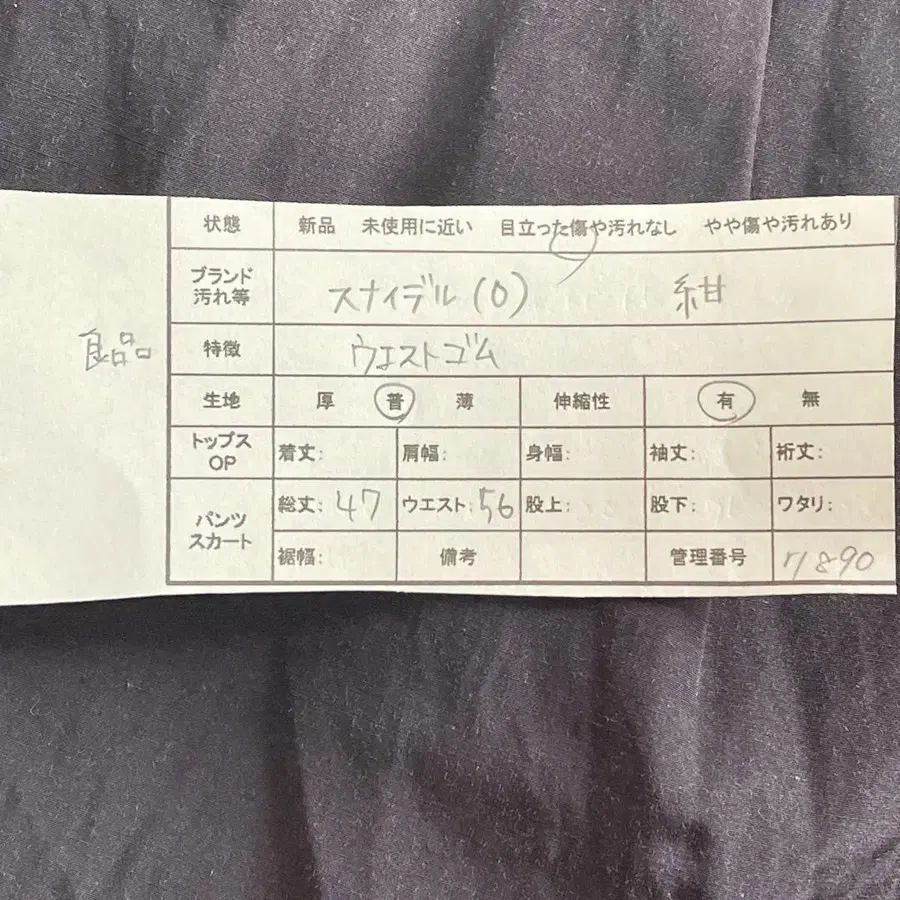 状態 新品 未使用に近い 目立った傷や汚れなし やや傷や汚れあり
ブランド 汚れ等 スナイデル(0) 紺
良品
特徴 ウエストゴム
生地 厚 普 薄 伸縮性 有 無
トップス OP 着丈: 肩幅: 身幅: 袖丈: 裄丈:
パンツ スカート 総丈: 47 ウエスト: 56 股上: 股下: ワタリ:
裾幅: 備考 管理番号 7890